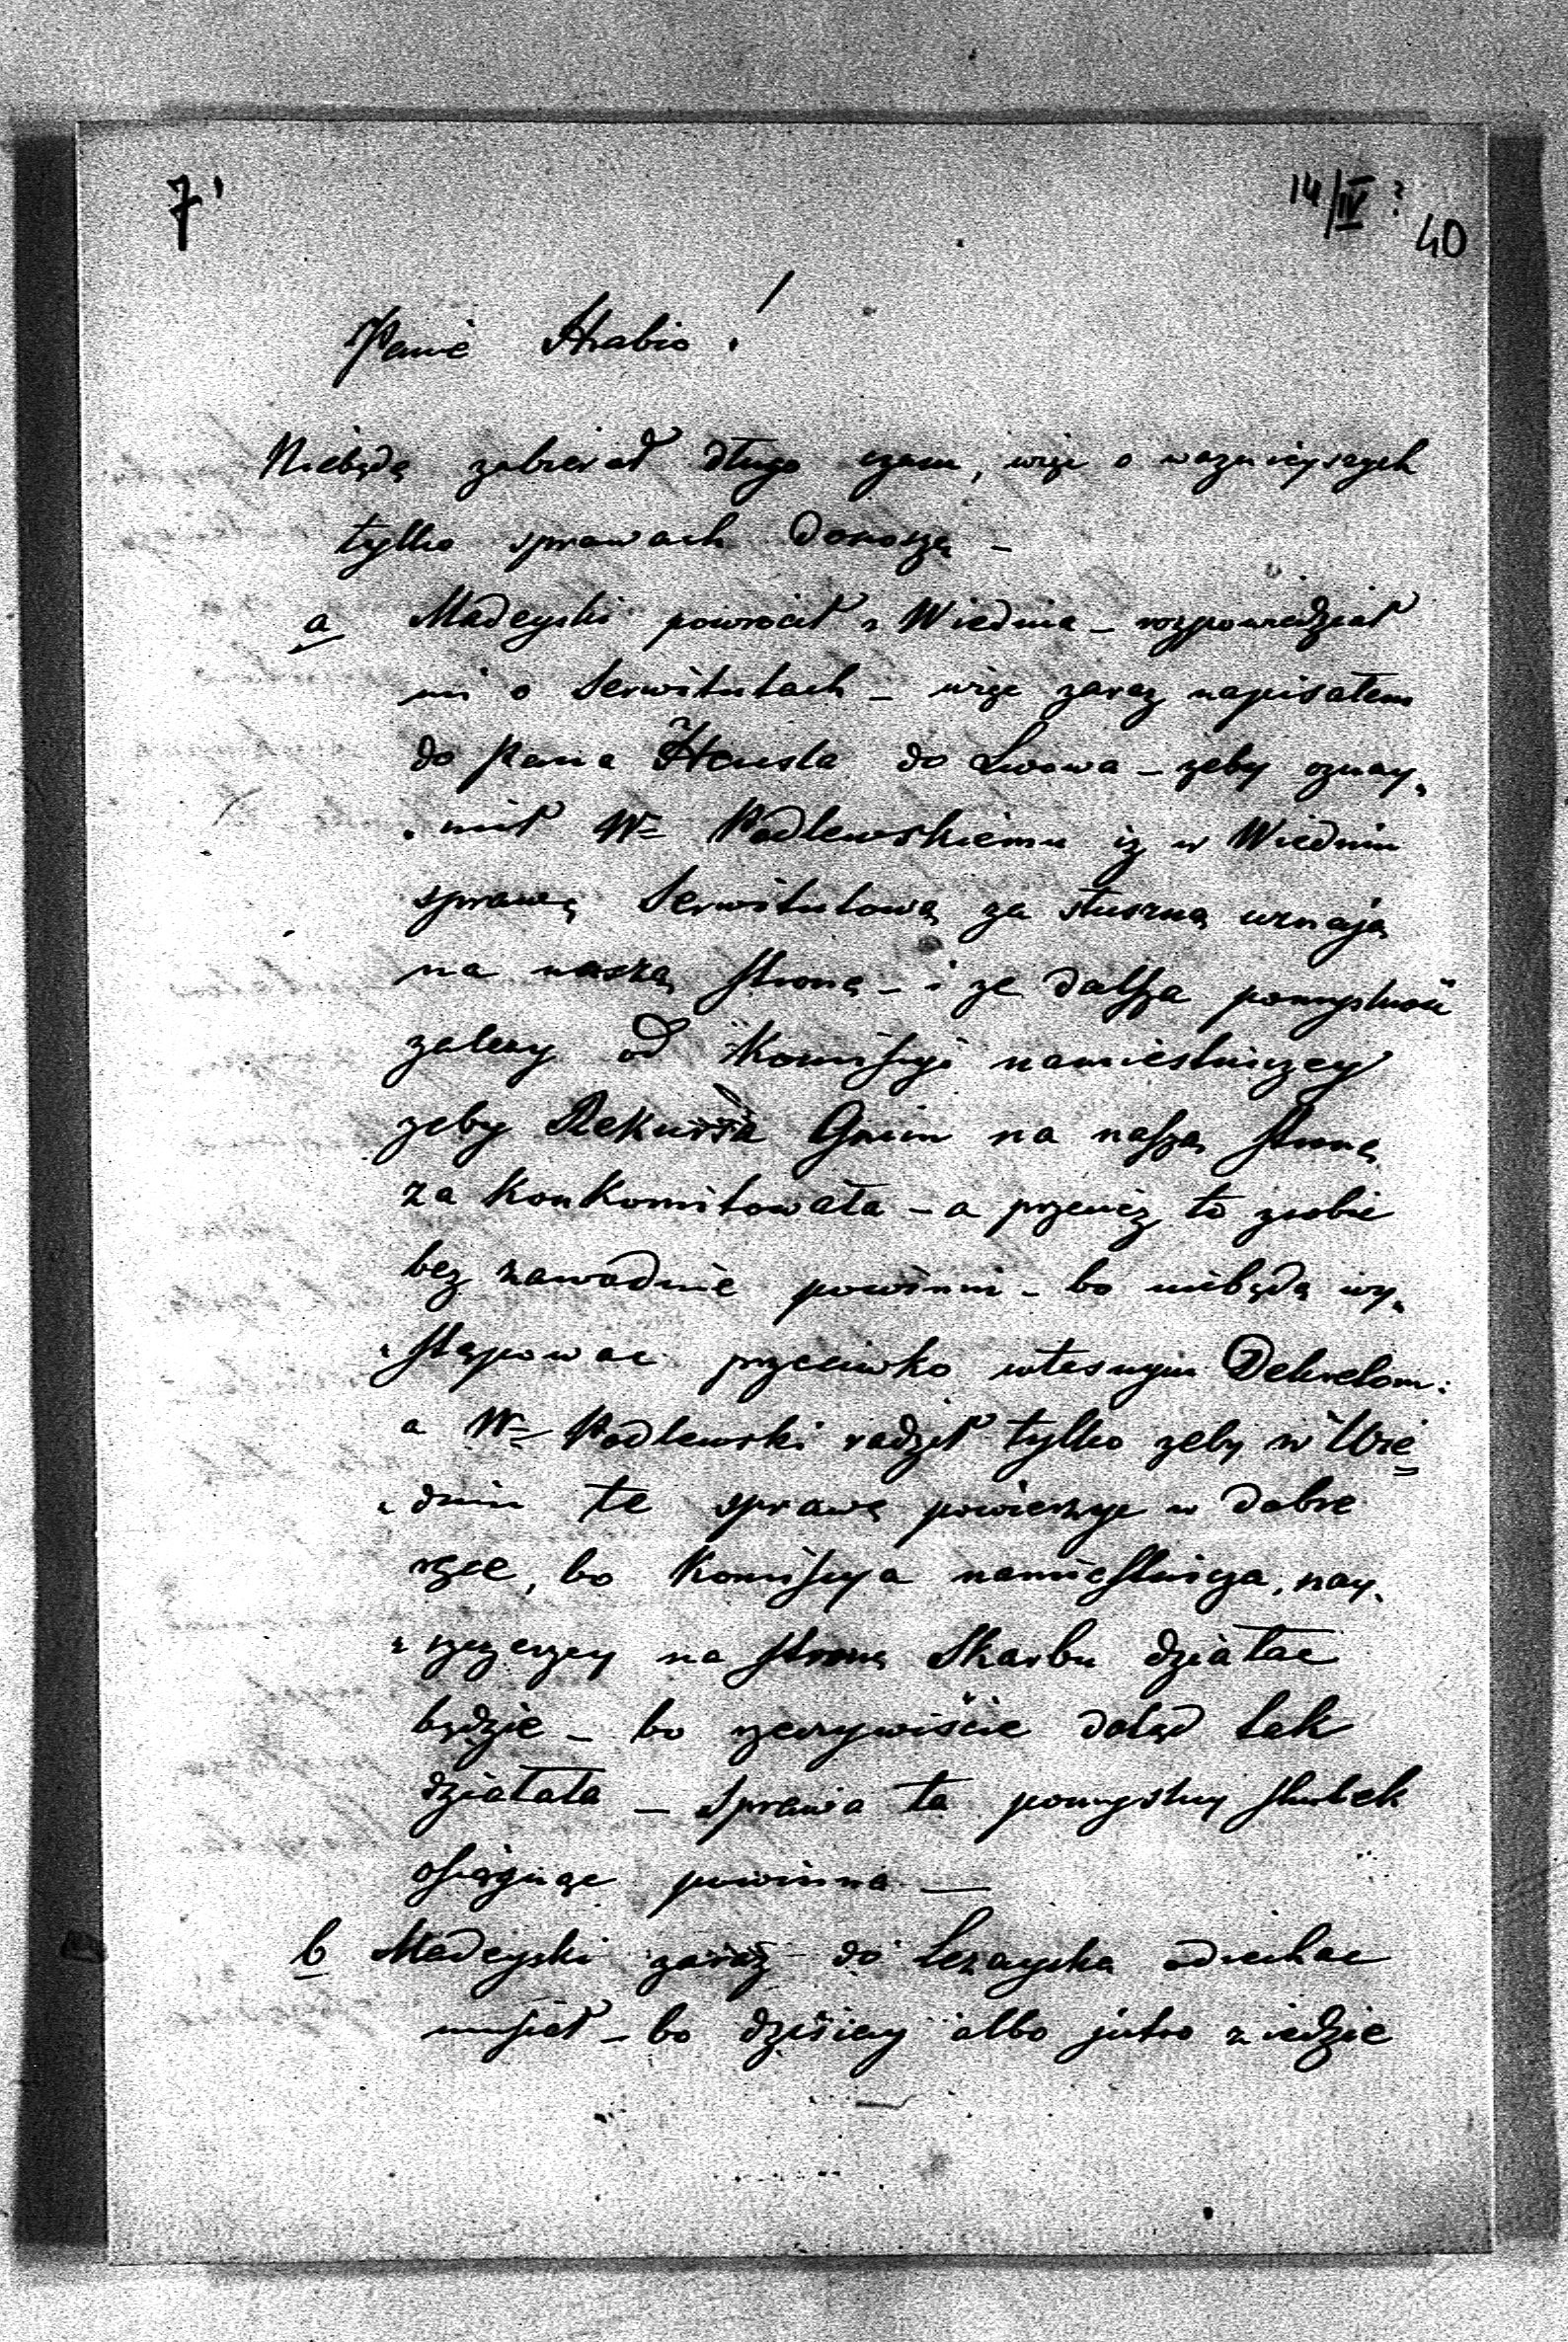 7'
14/IV ?
40
Panie Hrabio !
Niebędę zabierał długo czasu, więc o wazniejszych
tylko sprawach donoszę –
a Madeyski powrocił z Wiednia – rozpowiedział
mi o Serwitutach – więc zaraz napisałem
do Pana do Lwowa – zeby oznay„
„mił W= Podlewskiemu iz w Wiedniu
sprawę Serwitutową za słuszną uznają
na naszą stronę – i ze dalsza pomyslność
zalezy od Komisyi namiestniczey
zeby Rekursa Gmin na naszą stronę
za konkomitowała – a przeciez to zrobić
bez zawodnie powinni – bo niebędą wy„
„stępowac przeciwko własnym Dekretom:
a W= Podlewski radził tylko zeby w Wie=
„dniu te sprawę powierzyc w dobre
ręce, bo Komisya namiestnicza, nay„
„szczerzey na stronę Skarbu działac
będzie – bo rzeczywiście dotąd tak
działała – Sprawa ta pomyslny skutek
osiągnąc powinna —
b Madeyski zaraz do Lezayska odiechac
musiał – bo dzisiay albo jutro ziedzie